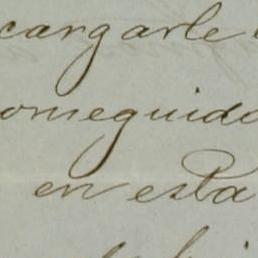 cargarle
omeguido
en esta